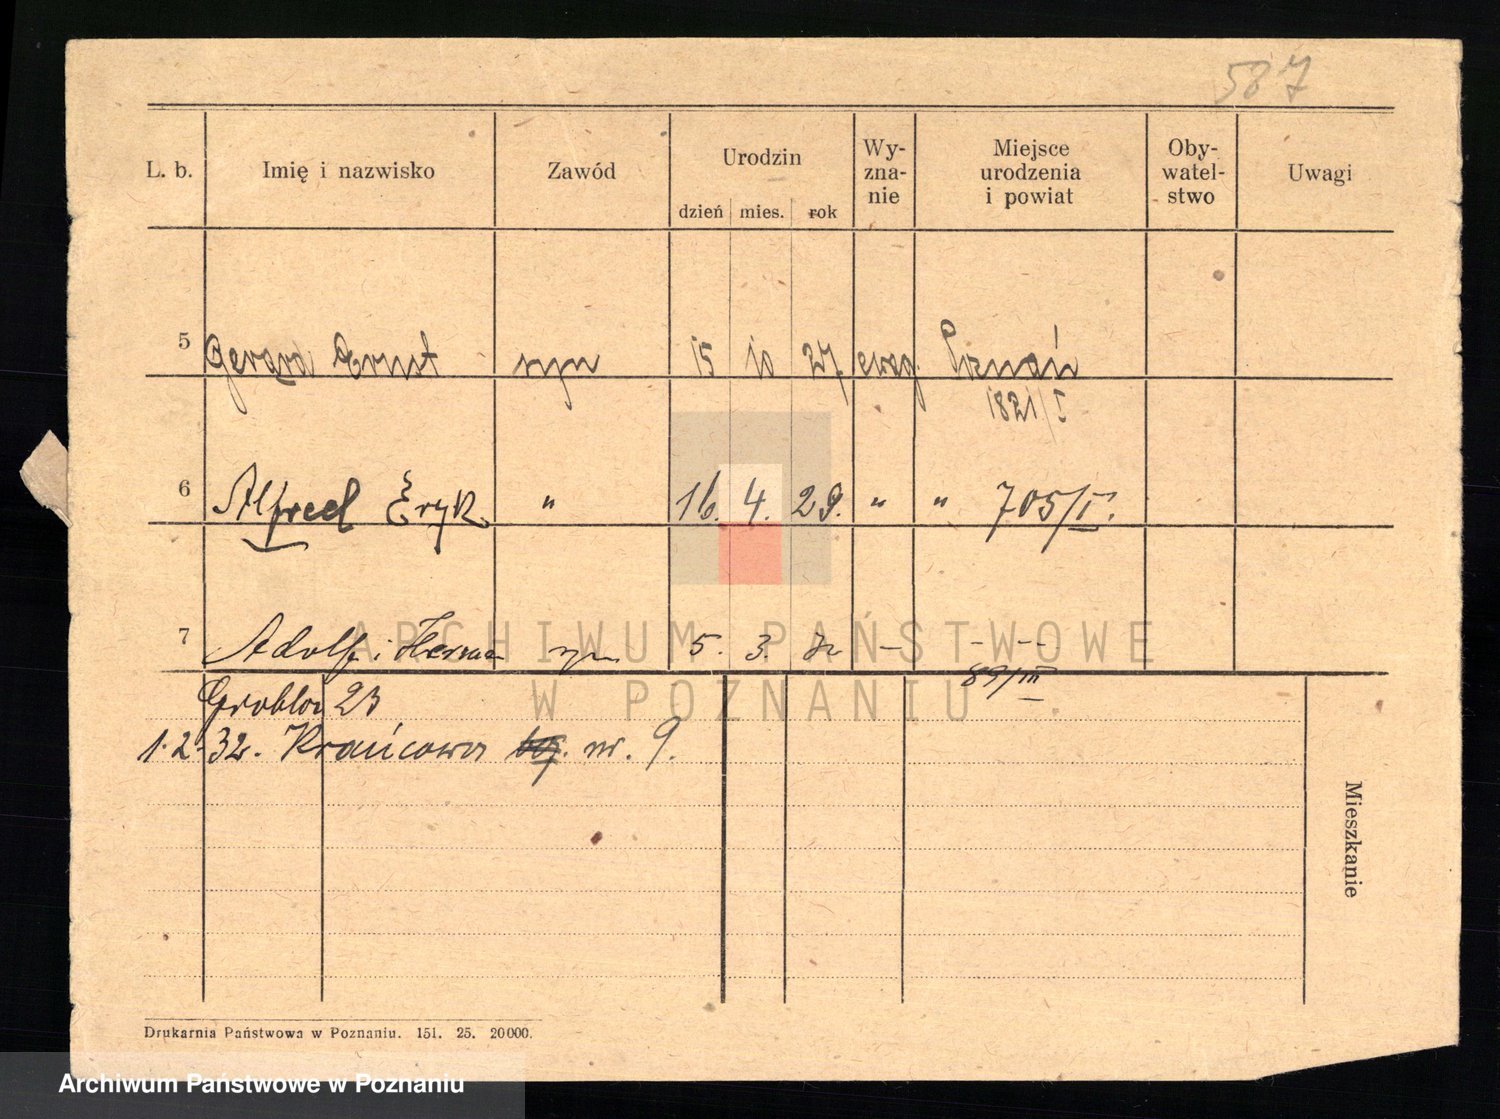 587
L. b. Imię i nazwisko Zawód Urodzin dzień mies. rok Wy-zna-nie Miejsce urodzenia i powiat Oby-watel-stwo Uwagi
5 Gerard Ernst syn 15 10 27 ewag. Poznań
1821/I
6 Alfred Eryk " 16. 4. 29. " " 705/I.
7 Adolf i Herman syn 5. 3. 32 – - - -
89/III
Grobla 23
1.2.32. Krańcowa nr. 9.
Mieszkanie
Drukarnia Państwowa w Poznaniu. 151. 25. 20000.
ARCHIWUM PAŃSTWOWE
W POZNANIU
Archiwum Państwowe w Poznaniu